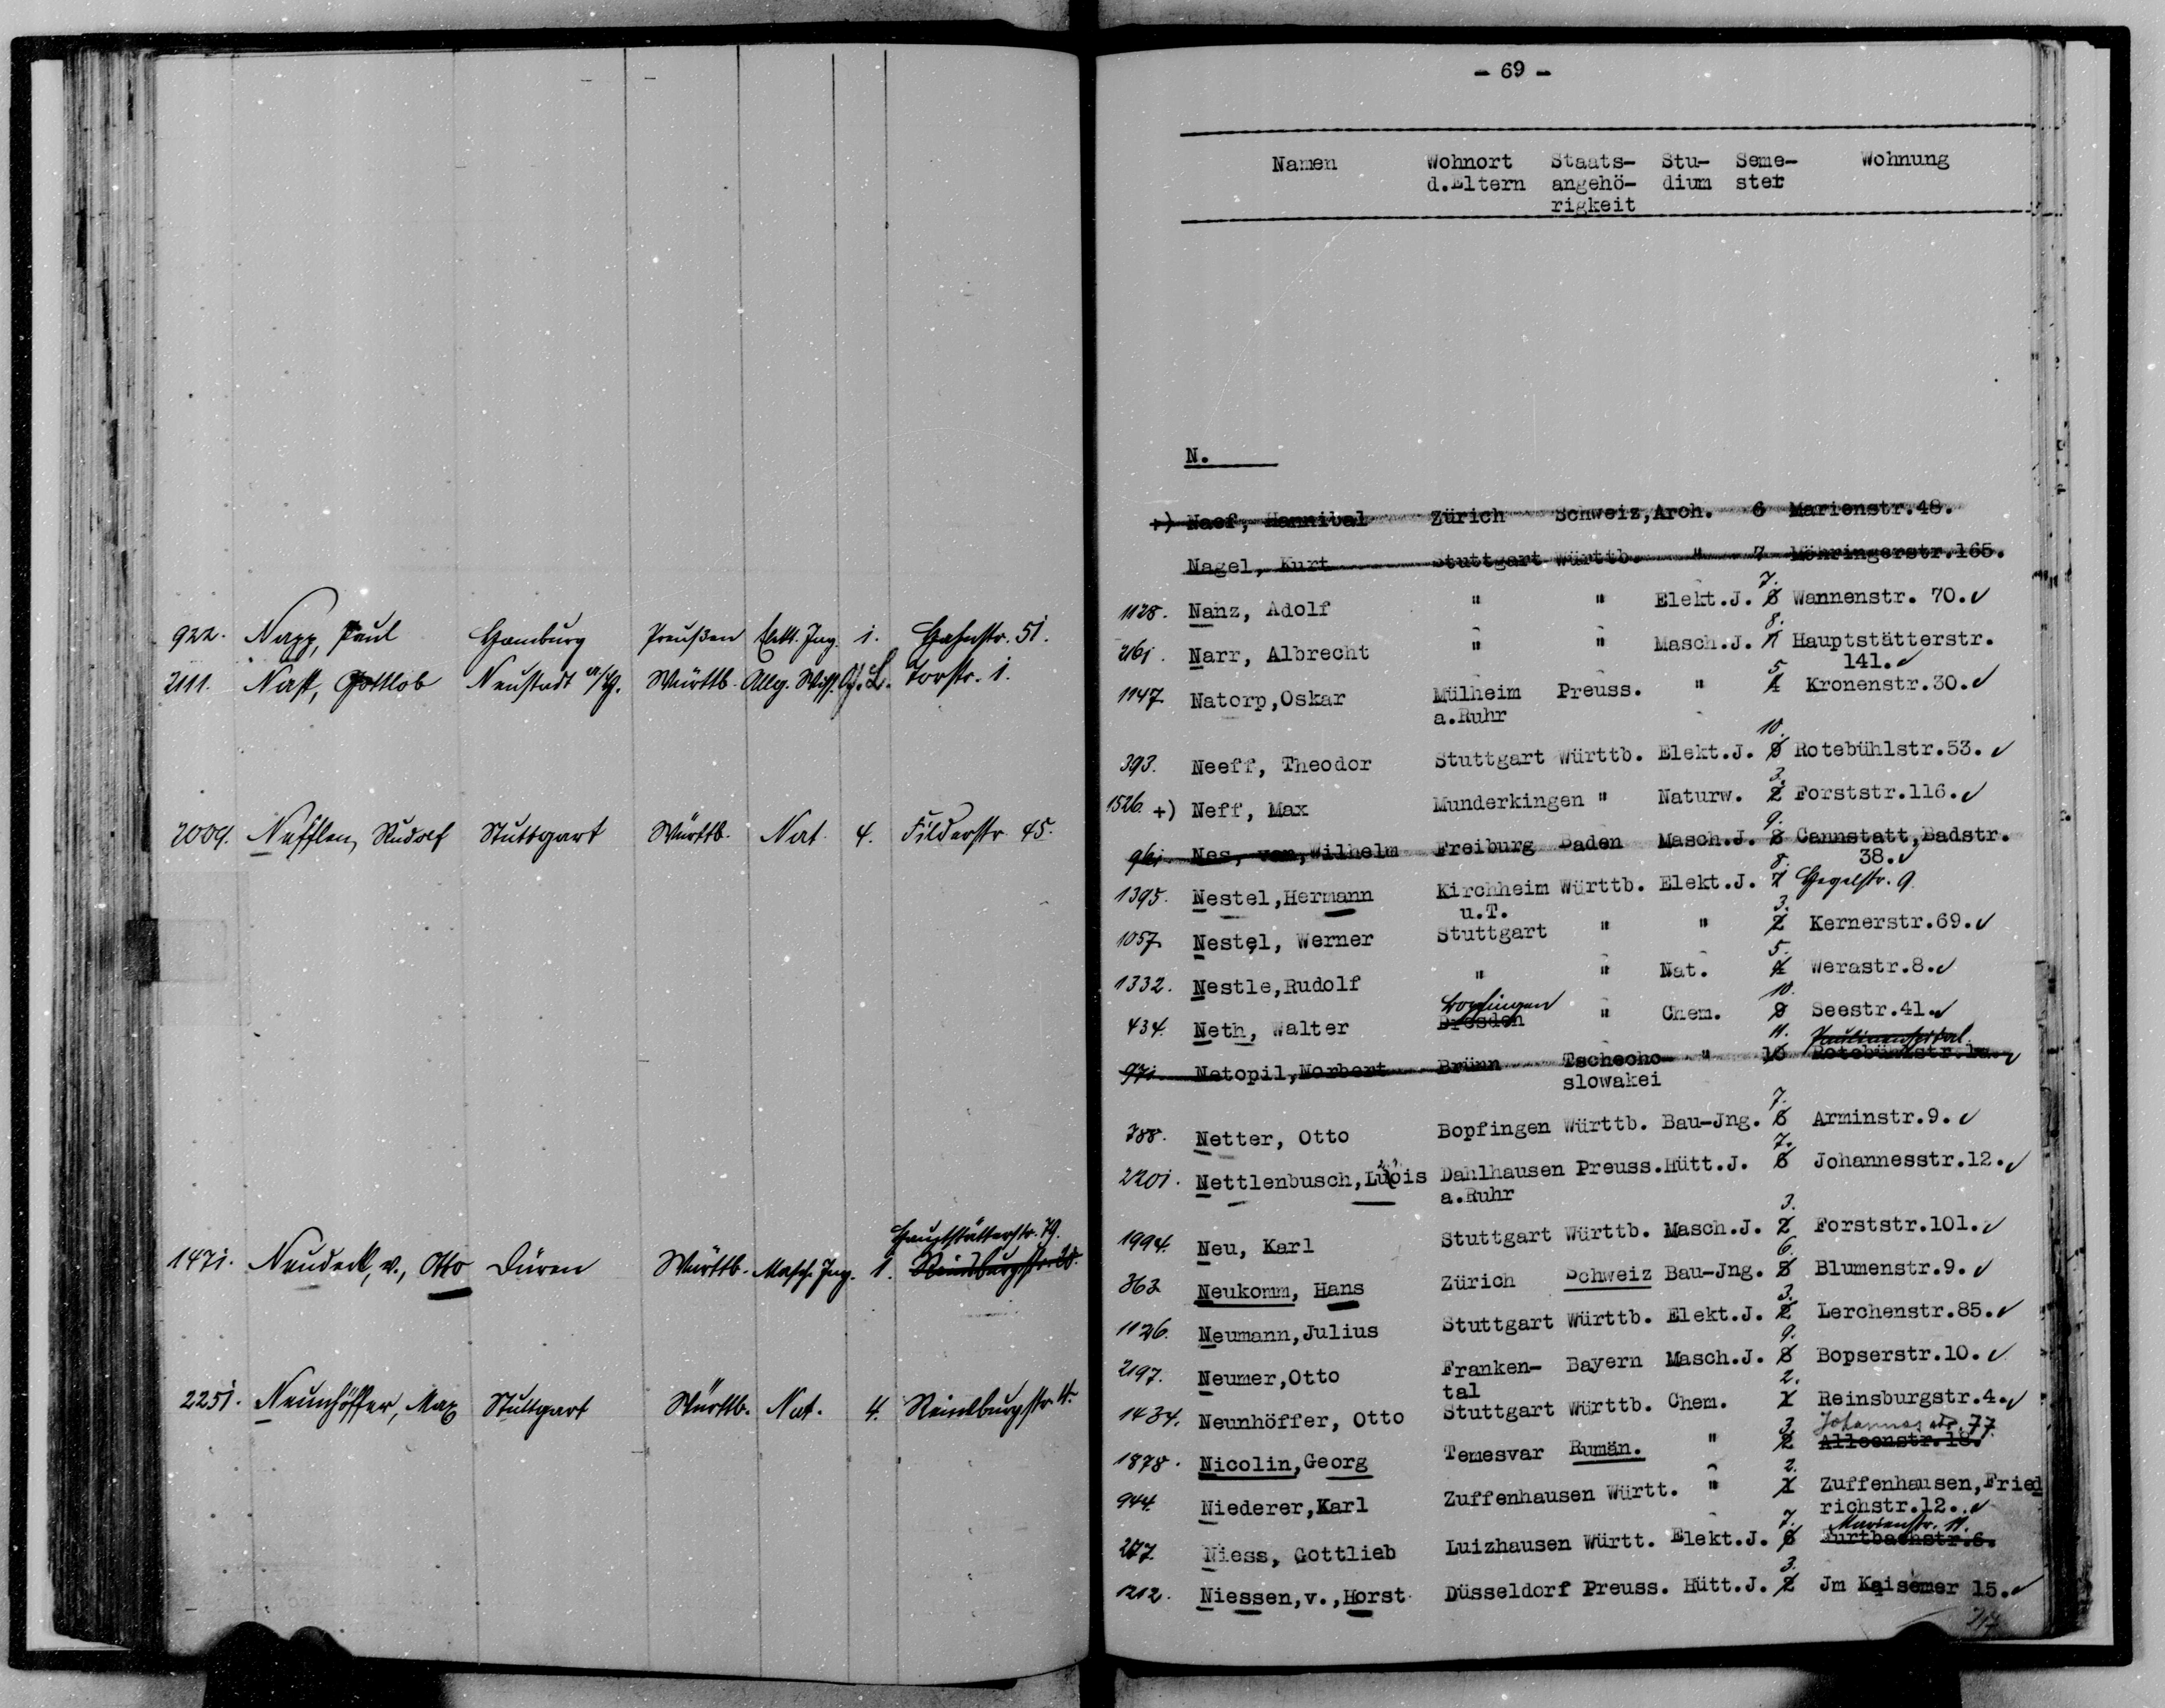 922. Napp, Paul Hamburg Preußen Elekt. Ing. 1. Hahnstr. 51.
2111. Nast, Gottlob Neustadt Württb. Allg. Wiss. Torstr. 1.
2009. Nefflen, Rudolf Stuttgart Württb. Nat. 4. Filderstr. 45.
Hauptstätterstr. 79.
1471. Neudeck, v., Otto Düren Württb. Masch. Ing. 1.
2251. Neunhöffer, Max Stuttgart Württb. Nat. 4. Reinsburgstr. 4.
- 69 -
Namen Wohnort Staats- Stu- Seme- Wohnung
d.Eltern angehö- dium ster
rigkeit
N.
+) Naef, Hannibal Zürich Schweiz, Arch. 6 Marienstr.48.
Nagel, Kurt Stuttgart Württb. " 7 Möhringerstr.165.
7.
1128. Nanz, Adolf " " Elekt.J. 6 Wannenstr. 70.
8.
2161. Narr, Albrecht " " Masch.J. 7 Hauptstätterstr.
141.
5.
1147. Natorp,Oskar Mülheim Preuss. " 4 Kronenstr.30.
a.Ruhr
10.
393. Neeff, Theodor Stuttgart Württb. Elekt.J. 9 Rotebühlstr.53.
3.
1526. +) Neff, Max Munderkingen " Naturw. 2 Forststr.116.
9.
961. Nes, von,Wilhelm Freiburg Baden Masch.J. 8 Cannstatt,Badstr.
38.
8.
1395. Nestel,Hermann Kirchheim Württb. Elekt.J. 7 Hegelstr. 9
u.T.
3.
1057. Nestel, Werner Stuttgart " " 2 Kernerstr.69.
5.
1332. Nestle,Rudolf " " Nat. 4 Werastr.8.
10.
434. Neth, Walter Dresden " Chem. 9 Seestr.41.
11.
971. Netopil,Norbert Brünn Tschecho- " 10
slowakei
7.
788. Netter, Otto Bopfingen Württb. Bau-Jng. 6 Arminstr.9.
7.
2201. Nettlenbusch,Luois Dahlhausen Preuss.Hütt.J. 6 Johannesstr.12.
a.Ruhr
3.
1994. Neu, Karl Stuttgart Württb. Masch.J. 2 Forststr.101.
6.
363. Neukomm, Hans Zürich Schweiz Bau-Jng. 5 Blumenstr.9.
3.
1126. Neumann,Julius Stuttgart Württb. Elekt.J. 2 Lerchenstr.85.
9.
2197. Neumer,Otto Franken- Bayern Masch.J. 8 Bopserstr.10.
tal
2.
1434. Neunhöffer, Otto Stuttgart Württb. Chem. 1 Reinsburgstr.4.
3. Johannesstr. 77
1878. Nicolin,Georg Temesvar Rumän. " 2 Alleenstr.18.
2.
944. Niederer,Karl Zuffenhausen Württ. " 1 Zuffenhausen,Fried
richstr.12.
7. Marienstr. 11.
277. Niess, Gottlieb Luizhausen Württ. Elekt.J. 6 Furtbachstr.6.
3.
1212. Niessen,v.,Horst Düsseldorf Preuss. Hütt.J. 2 Jm Kaisemer 15.